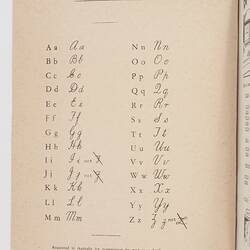 Aa Aa Nn Nn
Bb Bb Oo Oo
Cc Cc Pp Pp
Dd Dd Qq Qq
Ee Ee Rr Rr
Ff Ff Ss Ss
Gg Gg Tt Tt
Hh Hh Uu Uu
Ii Ii not I Vv Vv
Jj Jj not J Ww Ww
Kk Kk Xx Xx
Ll Ll Yy Yy
Mm Mm Zz Zz not Z